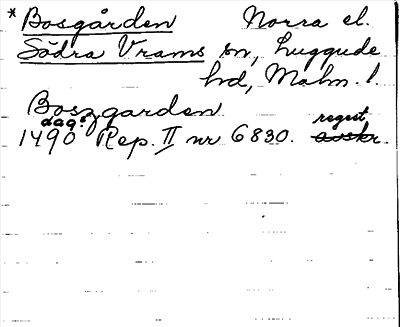 * Bosgården Norra el.
Södra Vrams sn, Luggude
hd, Malm. l.
Boszgarden
dag?
1490 Rep. II nr 6830. regest avskr.